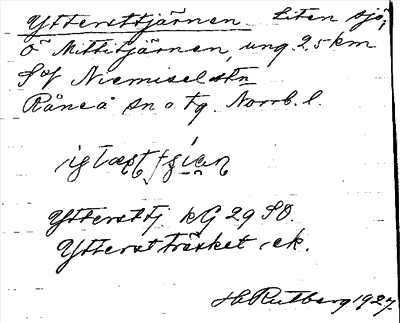 Yttersttjärnen. Liten sjö,
Ö Mittitjärnen, ung. 2,5 km
S of Niemisel stn
Råneå sn o. tg. Norrb. l.
Yttersttj. kG 29 SO.
Ytterstträsket, ek.
H Rutberg 1927.